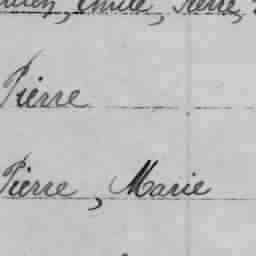 Emile, Pierre,
Pierre
Pierre, Marie